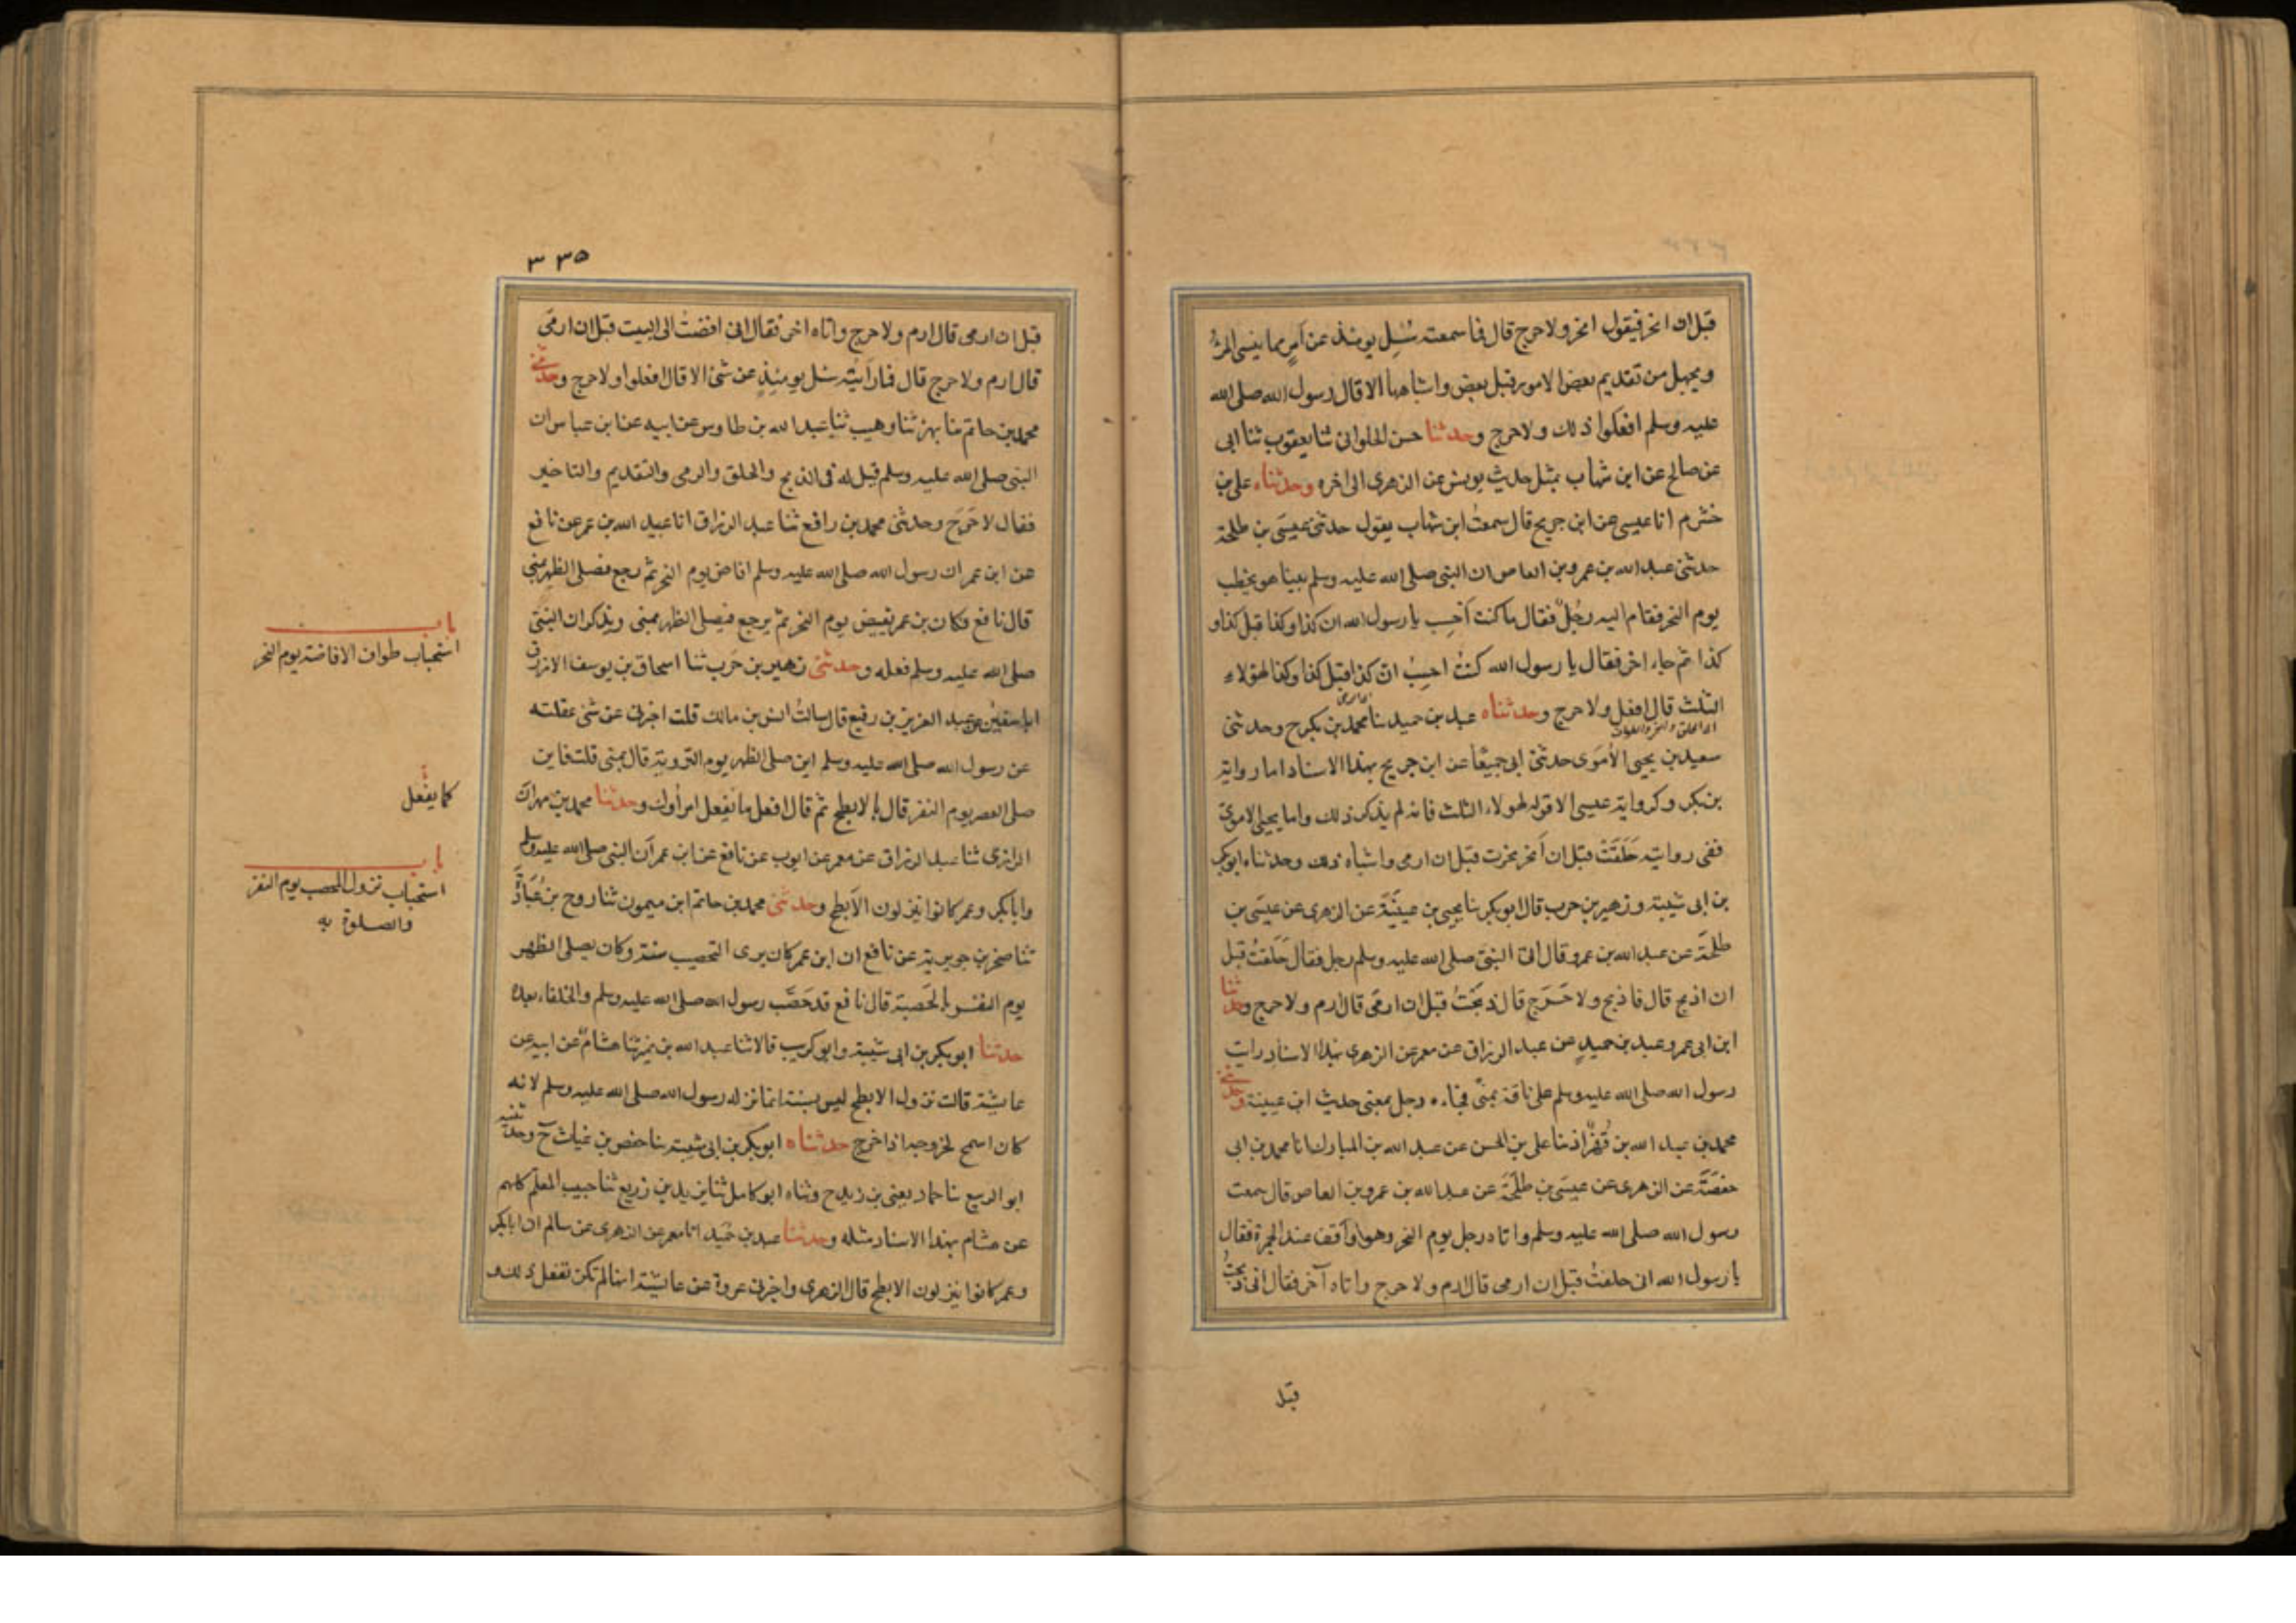 قبل ان انحر فيقول انحر ولا حرج قال فما سمعته سُئِل يومئذ عن امرٍ مما ينسى المرءُ
ويجهل من تقديم بعض الامور قبل بعض واشباهها الا قال رسول الله صلى الله
عليه وسلم افعلوا ذلك ولا حرج وحدثنا حسن الحلوانى ثنا يعقوب ثنا ابى
عن صالح عن ابن شهاب بمثل حديث يونس عن الزهرى الى اخره وحدثناه على بن
خشرم انا عيسى عن ابن جريج قال سمعتُ ابن شهاب يقول حدثنى عيسَى بن طلحة
حدثنى عبد الله بن عمرو بن العاص ان النبى صلى الله عليه وسلم بينا هو يخطب
يوم النحر فقام اليه رجُلٌ فقال ما كنت اَحسِب يا رسول الله ان كذا وكذا قبل كذا و
كذا ثم جاء اخر فقال يا رسول الله كنتُ احسِبُ انّ كذا قبل كذا وكذا لهؤلاء
الثلث قال افعل ولا حرج وحدثناه عبد بن حميد نا محمد بن بكر ح وحدثنى
سعيد بن يحيى الاُمَوى حدثنى ابى جميعًا عن ابن جريج بهذا الاسناد اما رواية
بن بكر وكرواية عيسى الا قوله لهولاء الثلث فانه لم يذكر ذلك واما يحيى الاموىّ
ففى روايته حَلَقتُ قبل ان اَنحر نحرت قبل ان ارمى واشباه ذلك وحدثناه ابو بكر
بن ابى شيبة وزهير بن حرب قال ابو بكر نا يحيى بن عيَيْنَة عن الزهرى عن عيسَى بن
طلحَة عن عبد الله بن عمرو قال اتى النبىّ صلى الله عليه وسلم رجل فقال حَلَقتُ قبل
ان اذبح قال فاذبح ولا حَرَج قال ذبَحْتُ قبل ان ارمىَ قال ارم ولا حرج وحدثنا
ابن ابى عمر وعبد بن حميدٍ عن عبد الرزاق عن معمر عن الزهرى بهذا الاسناد رايت
رسول الله صلى الله عليه وسلم على ناقة بمنًى فجاءه رجل بمعنى حديث ابن عيينة وحدثنى
محمد بن عبد الله بن قُهْزَاذ نا على بن الحسن عن عبد الله بن المبارك انا محمد بن ابى
حفصَة عن الزهرى عن عيسَى بن طلحَة عن عبد الله بن عمرو بن العاص قال سمعت
رسول الله صلى الله عليه وسلم واتاه رجل يوم النحر وهو واَقف عند الجمرة فقال
يا رسول الله انى حلقتُ قبل ان ارمى قال ارم ولا حرج واتاه آخر فقال انى ذبحتُ
قبل
٣٣٥
قبل ان ارمى قال ارم ولا حرج واتاه اخر فقال انى افضتُ الى البيت قبل ان ارمىَ
قال ارم ولا حرج قال فما راَيتُه سُئل يومئِذٍ عن شئ الا قال افعلوا ولا حرج وحدثنى
محمد بن حاتم نا بهز ثنا وهيب ثنا عبد الله بن طاوس عن ابيه عن ابن عباس ان
النبى صلى الله عليه وسلم قيل له فى الذبح والحلق والرمى والتقديم والتاخير
فقال لا حَرَجَ وحدثنى محمد بن رافع ثنا عبد الرزاق انا عبيد الله بن عمر عن نافع
عن ابن عمر ان رسول الله صلى الله عليه وسلم افاض يوم النحر ثم رجع فصلى الظهر بمنى
قال نافع وكان بن عمر يفيض يوم النحر ثم يرجع فيصلى الظهر بمنى ويذكر ان النبىّ
صلى الله عليه وسلم فعله وحدثنى زهير بن حَرب ثنا اسحاق بن يوسف الازرق
انا سفيٰن عن عبد العزيز بن رفيع قال سالتُ انس بن مالك قلت اخبرنى عن شئ عقلته
عن رسول الله صلى الله عليه وسلم اين صلى الظهر يوم التروية قال بمنى قلت فاين
صلى العصر يوم النفر قال بالابطح ثم قال افعل ما يَفعل امراؤك وحدثنا محمد بن مهران
الرازى ثنا عبد الرزاق عن معمر عن ايوب عن نافع عن ابن عمر اَن النبى صلى الله عليه وسلم
وابا بكر وعمر كانوا ينزلون الاَبطح وحدثنى محمد بن حاتم ابن ميمون ثنا روح بن عُبَادَة
ثنا صخر بن جويرية عن نافع ان ابن عمر كان يرى التحصيب سنة وكان يصلى الظهر
يوم النفر بالحَصبة قال نافع قد حَصَّب رسول الله صلى الله عليه وسلم والخلفاء بعده
حدثنا ابو بكر بن ابى شيبة وابو كريب قالا ثنا عبد الله بن نمير ثنا هشامٌ عن ابيه عن
عايشة قالت نزول الابطح ليس بسنة انما نزله رسول الله صلى الله عليه وسلم لانه
كان اسمح لخروجه اذا خرج حدثناه ابو بكر بن ابى شيبة نا حفص بن غياث ح وحدثنيه
ابو الربيع نا حماد يعنى بن زيد ح وثناه ابو كامل ثنا يزيد بن زريع ثنا حبيب المعلم كلهم
عن هشام بهذا الاسناد مثله وحدثنا عبد بن حُميد انا معمر عن الزهرى عن سالم ان ابا بكر
وعمر كانوا ينزلون الابطح قال الزهرى واخبرنى عروة عن عائشة انها لم تكن تفعل ذلك و
باب
استحباب طواف الافاضة يوم النحر
كما يفعل
باب
استحباب نزول المحصب يوم النفر
والصلوة به